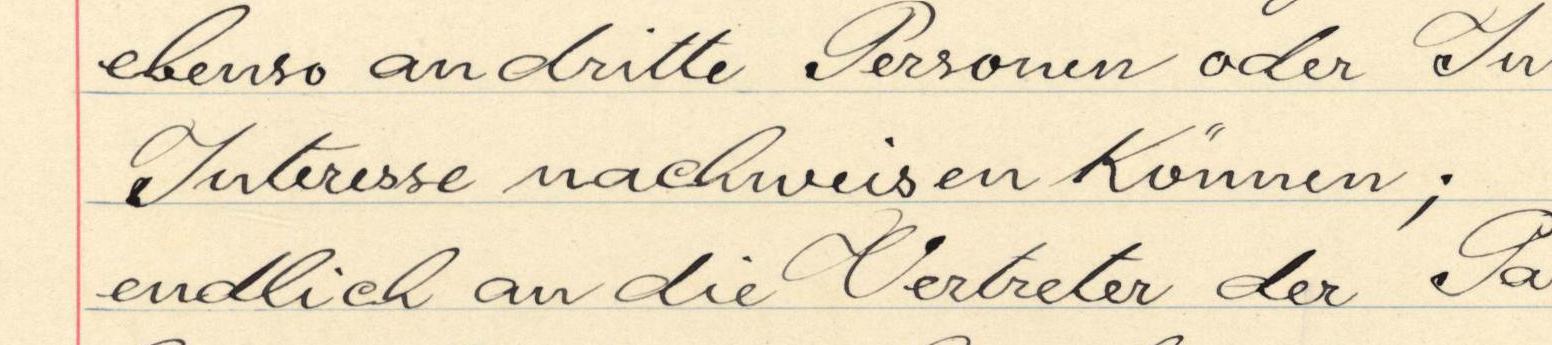 ebenso an dritte Personen oder In
Interesse nachweisen können;
endlich an die Vertreter der Pa